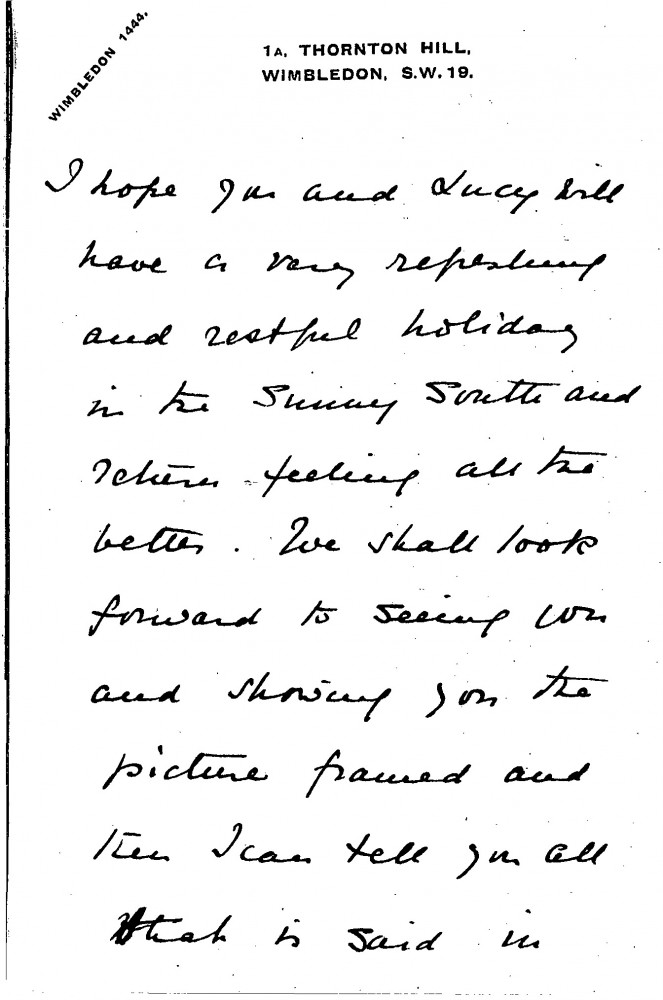 WIMBLEDON 1444.
1A, THORNTON HILL,
WIMBLEDON, S.W.19.
I hope you and Lucy will
have a very refreshing
and restful holiday
in the Sunny South and
return feeling all the
better. We shall look
forward to seeing you
and showing you the
picture framed and
then I can tell you all
that is said in